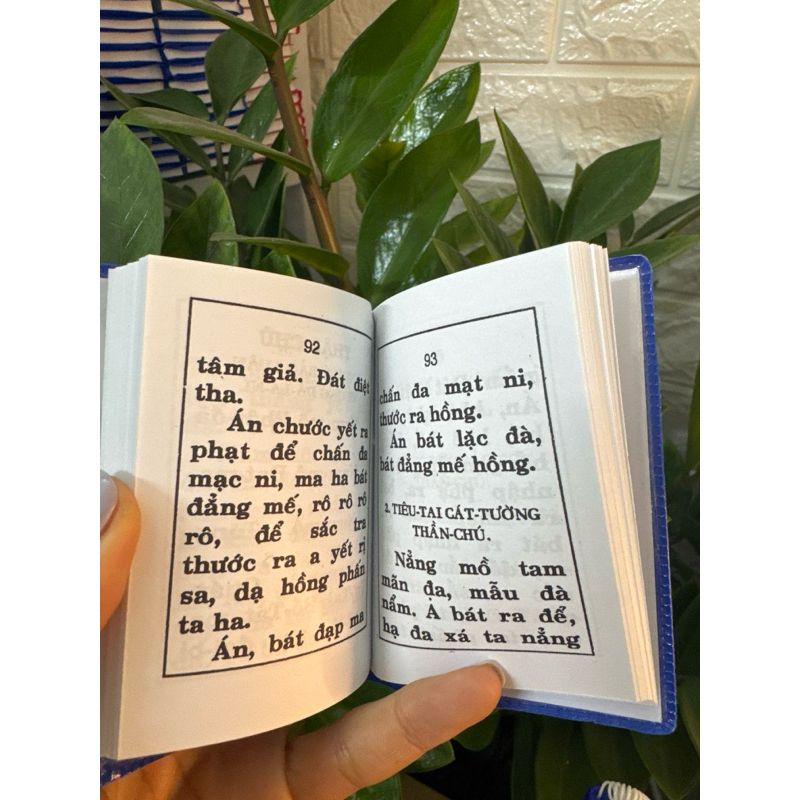 92
tâm giả. Đát điệt
tha.
Án chước yết ra
phạt để chấn đa
mạc ni, ma ha bát
đẳng mế, rô rô rô
rô, để sắc tra
thước ra a yết rị
sa, dạ hồng phấn
ta ha.
Án, bát đạp ma
93
chấn đa mạt ni,
thước ra hồng.
Án bát lặc đà,
bát đẳng mế hồng.
2. TIÊU-TAI CÁT-TƯỜNG
THẦN-CHÚ.
Nẳng mồ tam
mãn đạ, mẫu đà
nẩm. A bát ra để,
hạ đa xá ta nẳng